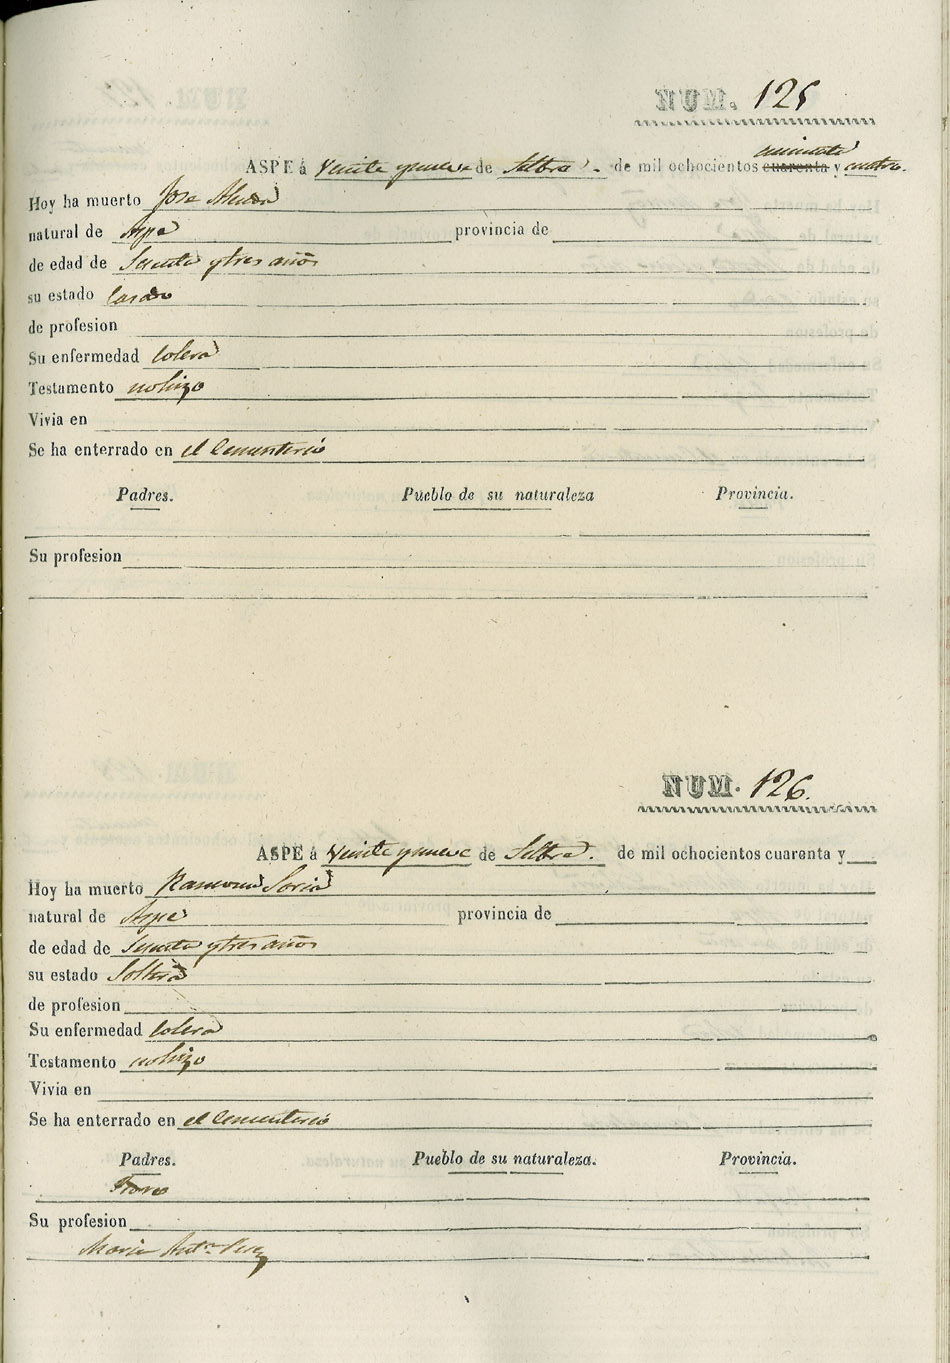 NUM. 125
cincuenta
ASPE á Veinte y nueve de Setbre. de mil ochocientos cuarenta y cuatro.
Hoy ha muerto Jose
natural de Aspe provincia de
de edad de y tres años
su estado Casado
de profesion
Su enfermedad Colera
Testamento no hizo
Vivia en
Se ha enterrado en el Cementerio
Padres. Pueblo de su naturaleza Provincia.
Su profesion
NUM. 126.
ASPE á Veinte y nueve de Setbre. de mil ochocientos cuarenta y
Hoy ha muerto Ramona Soria
natural de Aspe
provincia de
de edad de y tres años
su estado Soltera
de profesion
Su enfermedad Colera
Testamento no hizo
Vivia en
Se ha enterrado en el Cementerio
Padres. Pueblo de su naturaleza. Provincia.
Su profesion
Maria Anta Perez